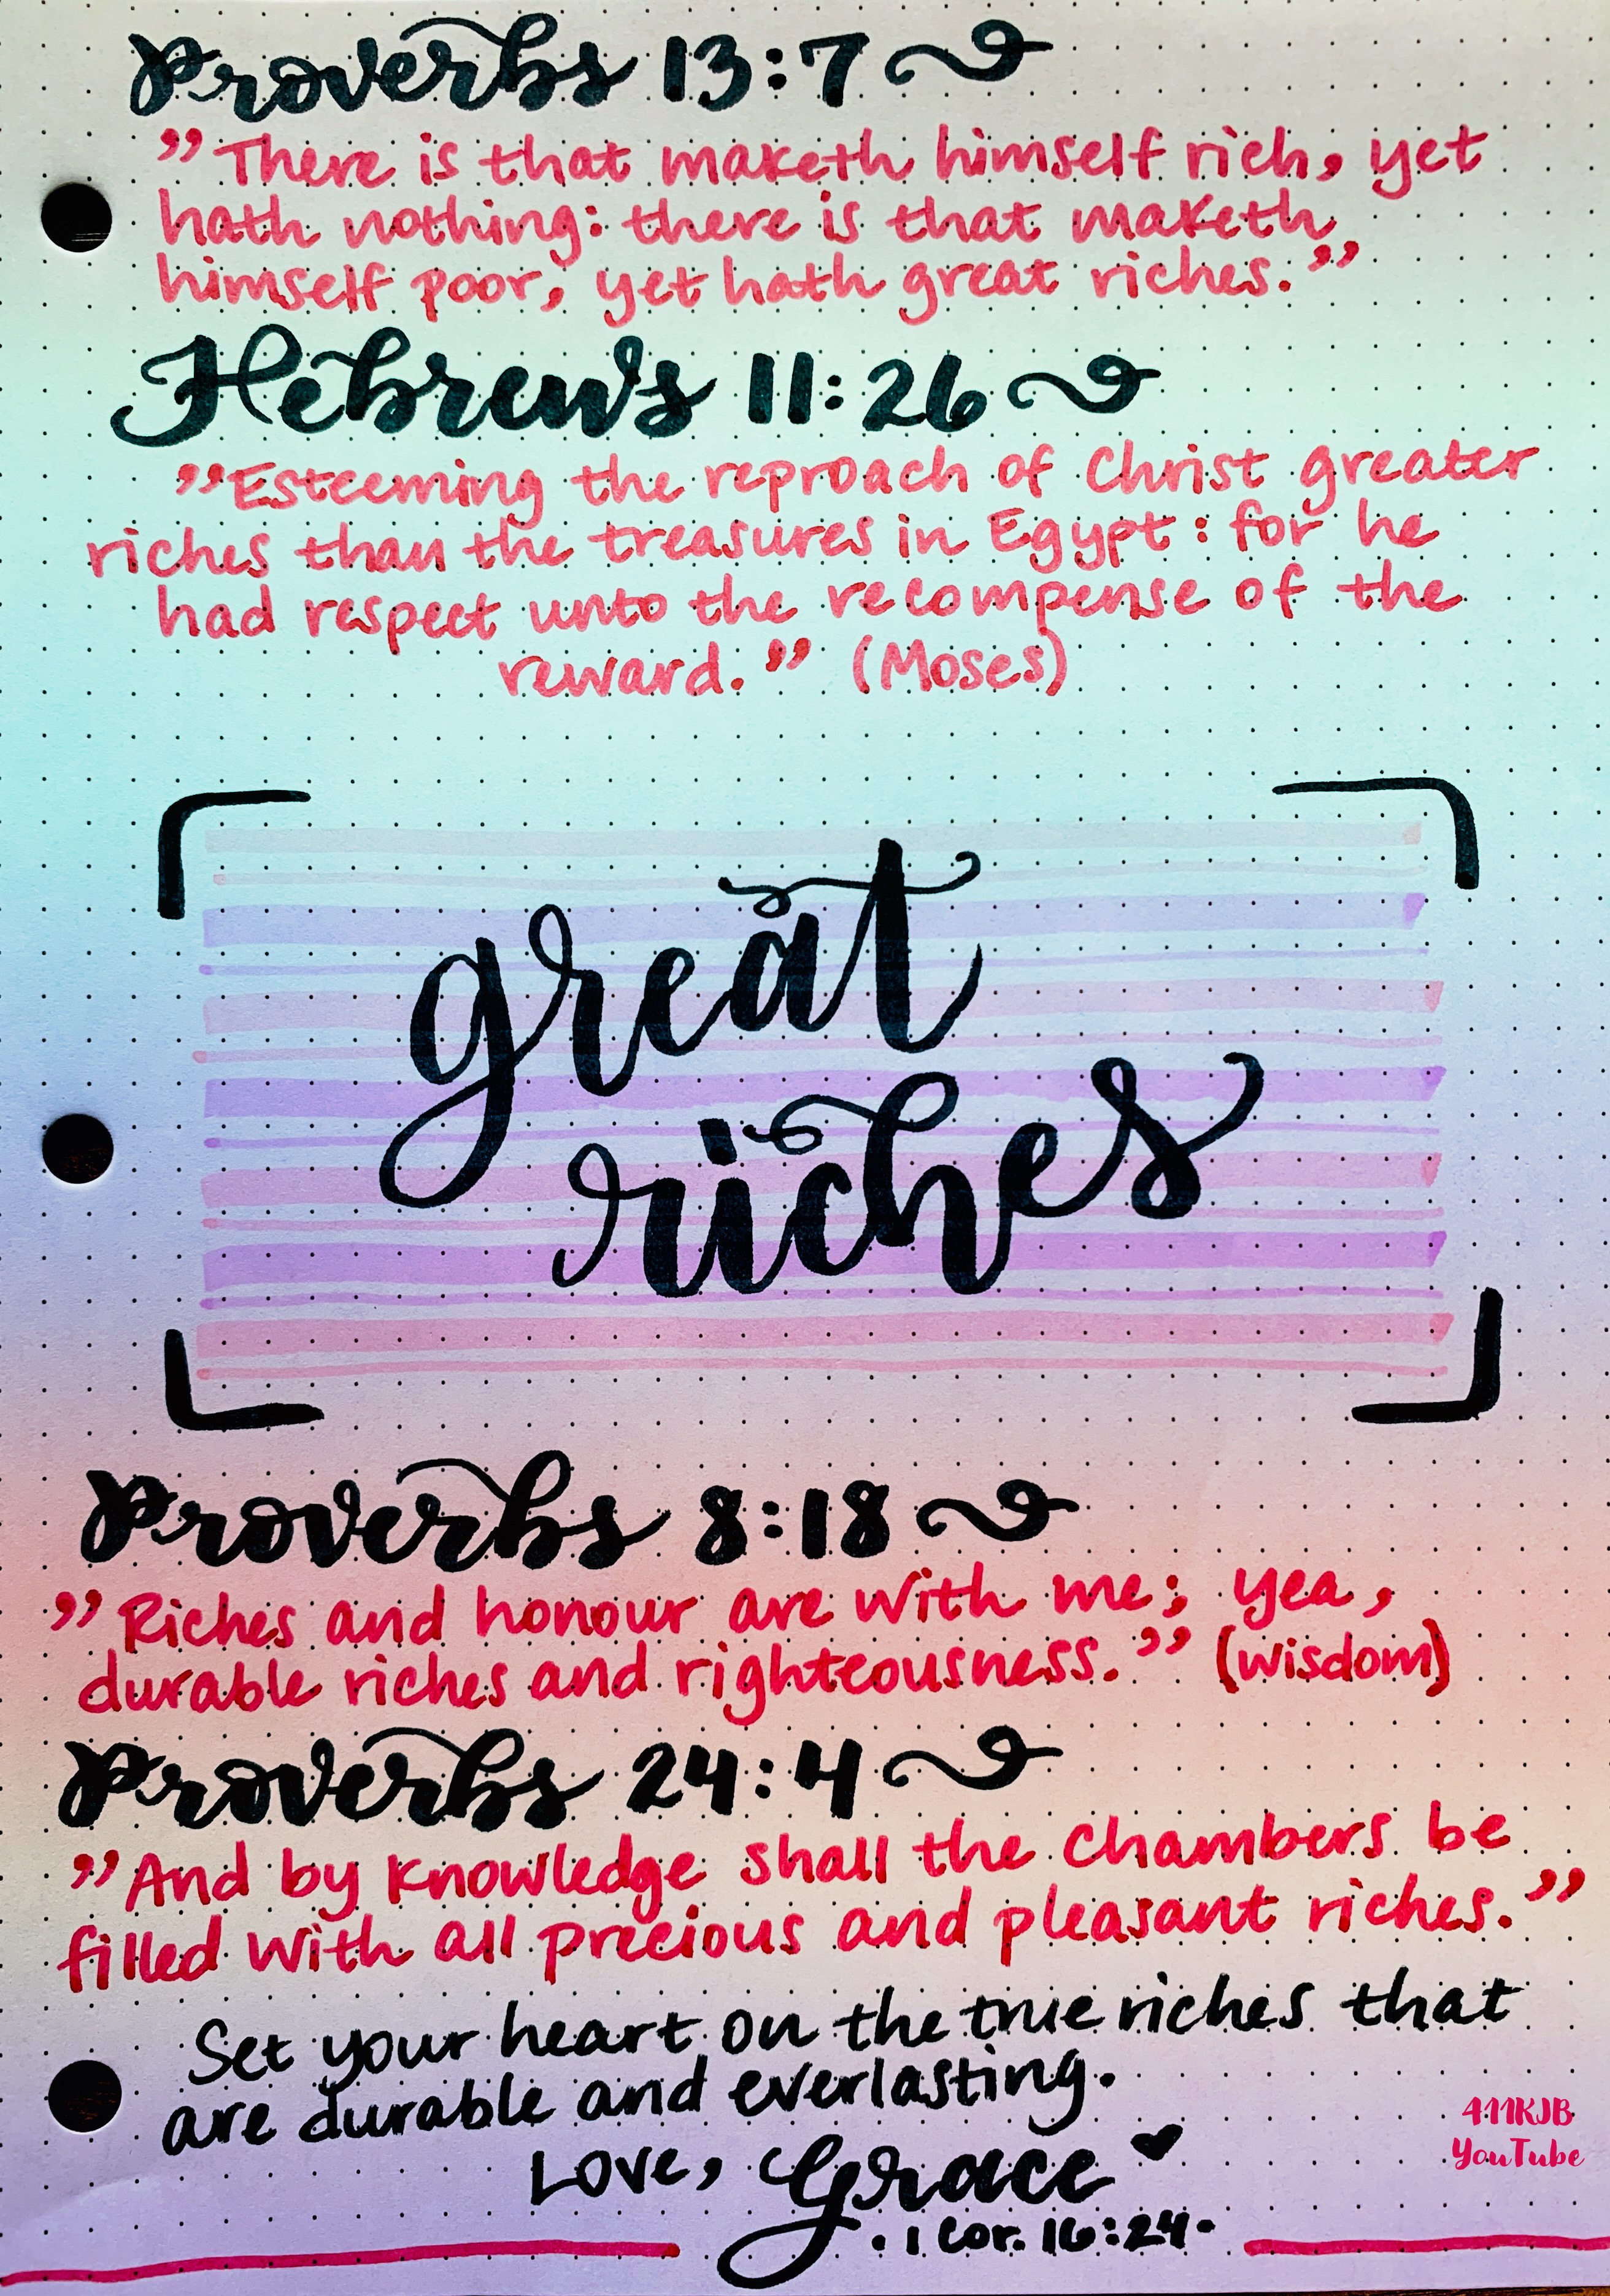 Proverbs 13:7
"There is that maketh himself rich, yet
hath nothing: there is that maketh
himself poor, yet hath great riches."
Hebrews 11:26
"Esteeming the reproach of Christ greater
riches than the treasures in Egypt: for he
had respect unto the recompense of the
reward." (Moses)
great
riches
Proverbs 8:18
"Riches and honour are with me; yea,
durable riches and righteousness." (wisdom)
Proverbs 24:4
"And by knowledge shall the chambers be
filled with all precious and pleasant riches."
Set your heart on the true riches that
are durable and everlasting.
Love, Grace
·1 Cor. 16:24·
411KJB
YouTube